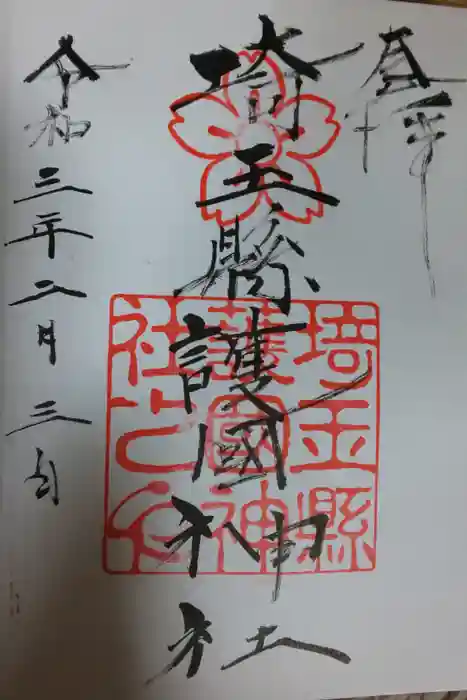 奉拝
埼玉縣護國神社
令和三年二月三日
埼玉縣
護國神
社之印